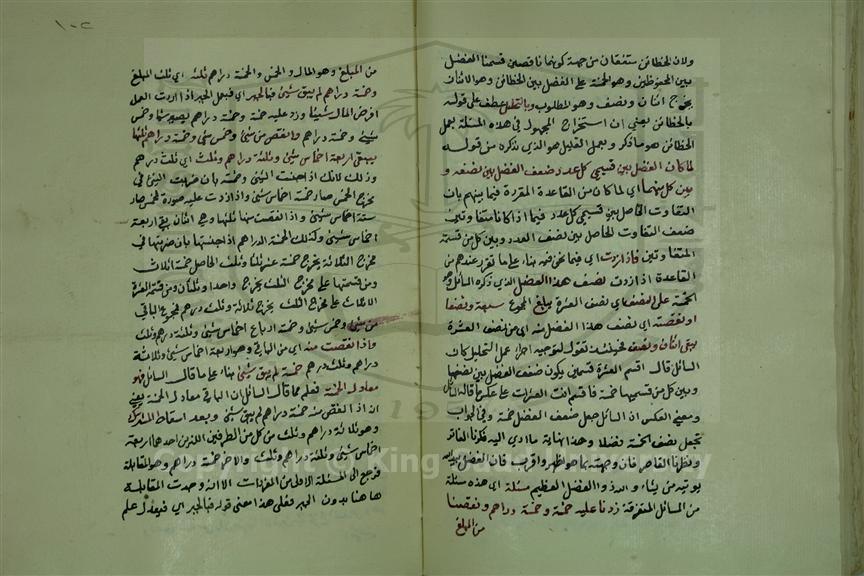 ولان الخطائن متفقان من جهة كونهما ناقصين قسمنا الفضل
بين المحفوظين وهو الخمسة على الفضل بين الخطائن وهو الاثنان
يخرج اثنان ونصف وهو المطلوب وبالتحليل عطف على قوله
بالخطائن يعني ان استخراج المجهول في هذه المسئلة بعمل
الخطائن هو ما ذكر وبعمل التحليل هو الذي نذكره من قوله
لما كان الفضل بين قسمي كل عدد ضعف الفضل بين نصفه و
بين كل منهما اي لما كان من القاعدة المقررة فيما بينهم بان
التفاوت الحاصل بين قسمي كل عدد فيما اذا كانا متفاوتين
ضعف التفاوت الحاصل بين نصف العدد وبين كل من قسميه
المتفاوتين فاذا زدت اي فيما نحن فيه بناء على ما تقرر عندهم من
القاعدة اذا زدت نصف هذا الفضل الذي ذكره السائل وهو
الخمسة على النصف اي نصف العشرة يبلغ المجموع سبعة ونصفا
او نقصته اي نصف هذا الفضل منه اي من نصف العشرة
يبقى اثنان ونصف فحينئذ نقول لتوجيه اجراء عمل التحليل كان
السائل قال اقسم العشرة قسمين يكون ضعف الفضل بين نصفها
وبين كل من قسميها خمسة فاقسم انت العشرات على عكس ما قاله السائل
ومعنى العكس ان السائل جعل ضعف الفضل خمسة وفي الجواب
تجعل نصف الخمسة فضلا وهذا نهاية ما ادى اليه فكرنا الفاتر
ونظرنا القاصر فان وجهته بما هو اظهر واقرب فان الفضل بيد الله
يوتيه من يشاء والله ذو الفضل العظيم مسئلة اي هذه مسئلة
من المسائل المتفرقة زدنا عليه خمسه وخمسة دراهم ونقصنا
من المبلغ
١٠٢
من المبلغ وهو المال والخمس والخمسة دراهم ثلثه اي ثلث المبلغ
وخمسة دراهم لم يبق شيئ فبالجبر اي فبعمل الجبر اذا اردت العمل
افرض المال شيئا وزد عليه خمسه وخمسة دراهم ليصير شيئا وخمس
شيئ وخمسة دراهم وانقص من شيئ وخمس شيئ وخمسة دراهم ثلثها
يبقى اربعة اخماس شيئ وثلثة دراهم وثلث اي ثلث درهم
وذلك لانك اذا جنست الشيئ وخمسه بان ضربت الشيئ في
مخرج الخمس صار خمسة اخماس شيئ واذا زدت عليه صورة الخمس صار
ستة اخماس شيئ واذا نقصت منها ثلثها وهي اثنان بقي اربعة
اخماس شيئ وكذلك الخمسة الدراهم اذا جنستها بان ضربتها في
مخرج الثلاثة يخرج خمسة عشر ثلثا وثلث الحاصل خمسة اثلاث
ومن قسمتها على مخرج الثلث يخرج واحد وثلثان ومن قسمة العشرة
الاثلاث على مخرج الثلث يخرج ثلاثة وثلث درهم فمجموع الباقي
من شيئ وخمس شيئ وخمسة دراهم اربعة اخماس شيئ وثلثة دراهم وثلث
واذا نقصت منه اي من الباقي وهو اربعة اخماس شيئ وثلاثة
دراهم وثلث درهم خمسة لم يبق شيئ بناء على ما قال السائل فهو
معادل الخمسة فعلم مما قال السائل ان الباقي معادل الخمسة يعني
ان اذا نقص منه خمسة دراهم لم يبق شيئ وبعد اسقاط المشترك
وهو ثلاثة دراهم وثلث من كل من الطرفين اللذين احدهما اربعة
اخماس شيئ وثلثة دراهم وثلث والاخر خمسة دراهم وهو المقابلة
فرجع الى المسئلة الاولى من المفردات الا انه وجدت المقابلة
ها هنا بدون الجبر فعلى هذا معنى قوله فبالجبر اي فيعدل علم
Copyright © King Saud University